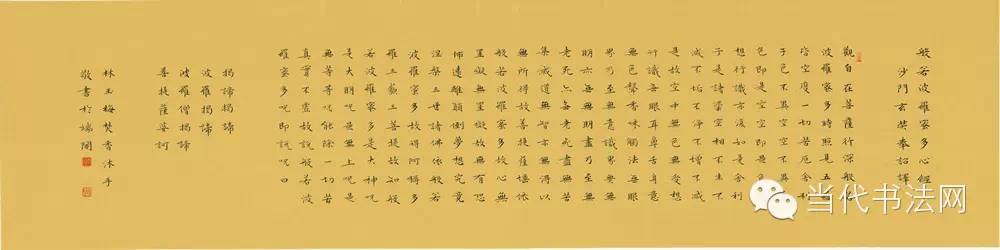 般若波羅蜜多心經
沙門玄奘奉詔譯
觀自在菩薩行深般
波羅蜜多時照見五
皆空度一切苦厄舍利
子色不異空空不異
色即是空空即是色
想行識亦復如是舍利
子是諸法空相不生不
滅不垢不淨不增不減
是故空中無色無受想
行識無眼耳鼻舌身意
無色聲香味觸法無眼
界乃至無意識界無無
明亦無無明盡乃至無
老死亦無老死盡無苦
集滅道無智亦無得以
無所得故菩提薩埵依
般若波羅蜜多故心無
罣礙無罣礙故無有恐
怖遠離顛倒夢想究竟
涅槃三世諸佛依般若
波羅蜜多故得阿耨多
羅三藐三菩提故知般
若波羅蜜多是大神呪
是大明呪是無上呪是
無等等呪能除一切苦
真實不虛故說般若波
羅蜜多呪即說呪曰
揭諦揭諦
波羅揭諦
波羅僧揭諦
菩提薩婆訶
林玉梅焚香沐手
敬書於
当代书法网